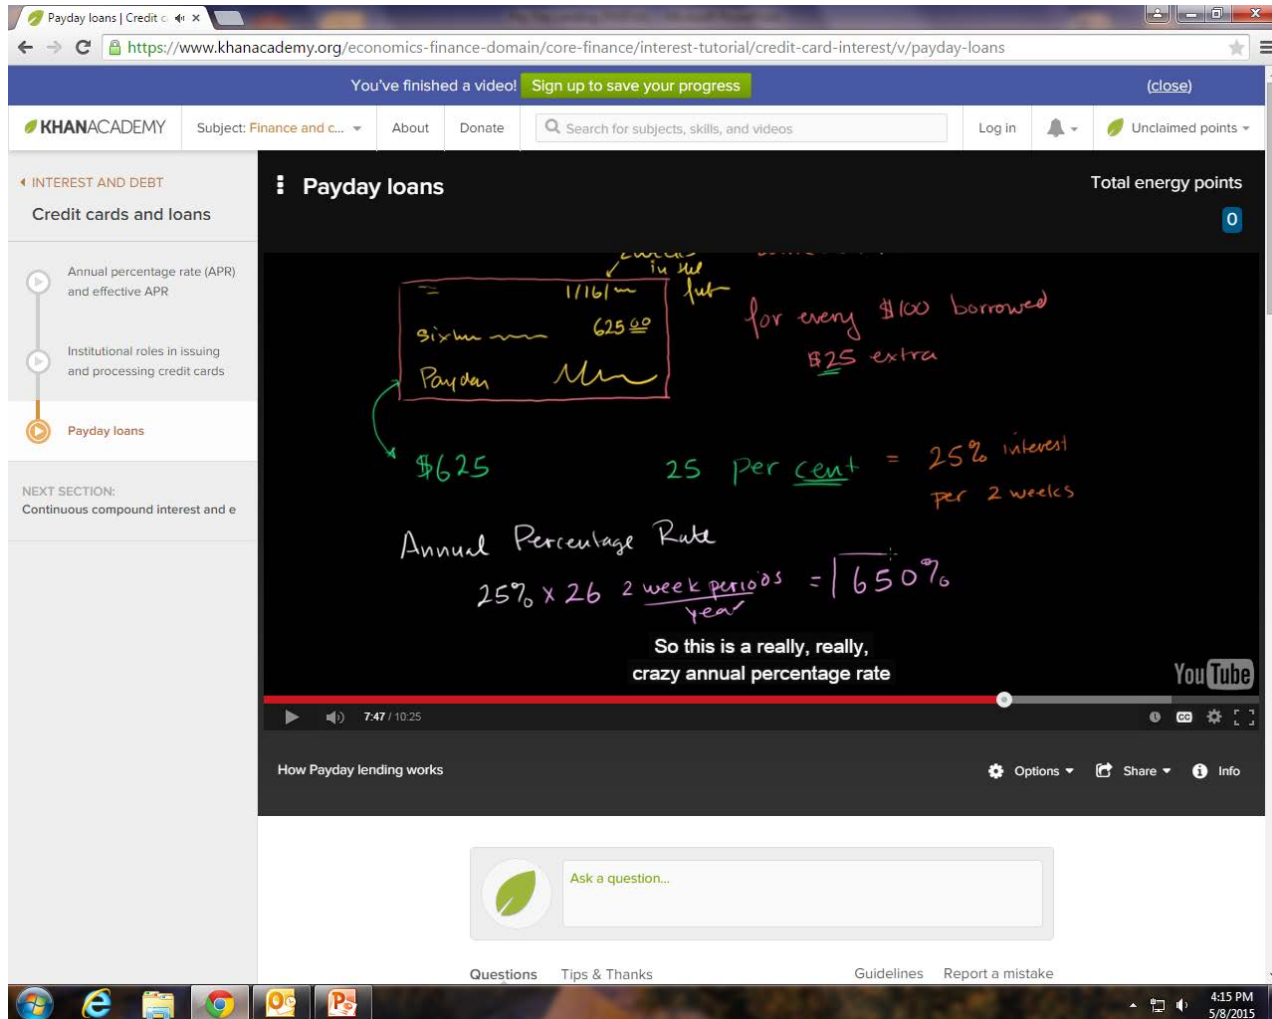 Payday loans | Credit c
https://www.khanacademy.org/economics-finance-domain/core-finance/interest-tutorial/credit-card-interest/v/payday-loans
You've finished a video! Sign up to save your progress (close)
KHANACADEMY Subject: Finance and c... About Donate Search for subjects, skills, and videos Log in Unclaimed points
INTEREST AND DEBT
Credit cards and loans
Annual percentage rate (APR)
and effective APR
Institutional roles in issuing
and processing credit cards
Payday loans
NEXT SECTION:
Continuous compound interest and e
Payday loans
Total energy points
0
in the
1/16/
fut
625 00
Payday
for every $100 borrowed
$25 extra
$625
25 per cent = 25% interest
per 2 weeks
Annual Percentage Rate
25% x 26 2 week periods = 650%
year
So this is a really, really,
crazy annual percentage rate
YouTube
7:47 / 10:25
CC
How Payday lending works
Options Share Info
Ask a question...
Questions Tips & Thanks Guidelines Report a mistake
4:15 PM
5/8/2015